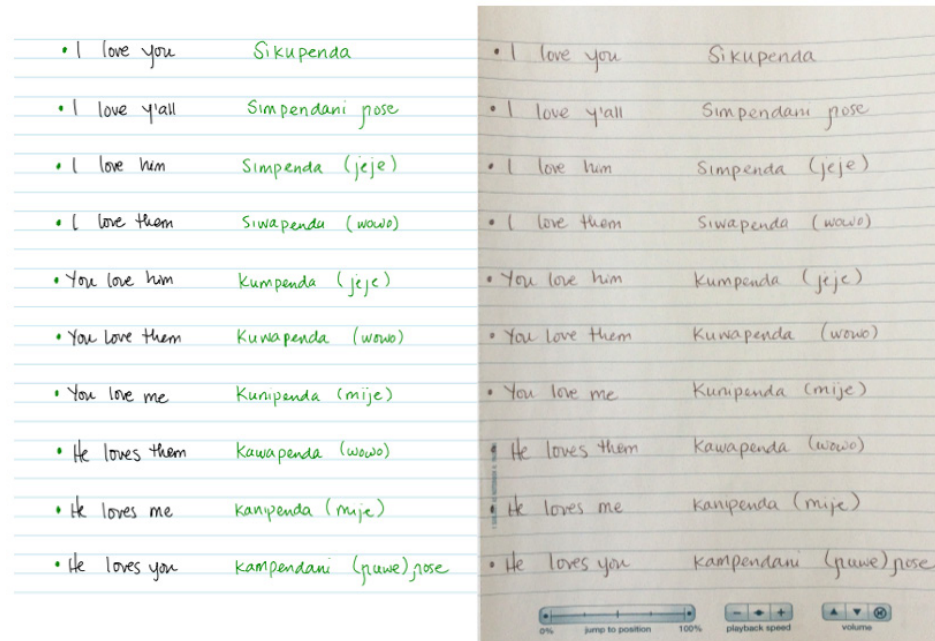 • I love you Sikupenda
• I love y'all Simpendani ɲose
• I love him Simpenda (jeje)
• I love them Siwapenda (wowo)
• You love him Kumpenda (jeje)
• You love them Kuwapenda (wowo)
• You love me Kunipenda (mije)
• He loves them Kawapenda (wowo)
• He loves me Kanipenda (mije)
• He loves you Kampendani (ɲuwe) ɲose
• I love you Sikupenda
• I love y'all Simpendani ɲose
• I love him Simpenda (jeje)
• I love them Siwapenda (wowo)
• You love him Kumpenda (jeje)
• You love them Kuwapenda (wowo)
• You love me Kunipenda (mije)
• He loves them Kawapenda (wowo)
• He loves me Kanipenda (mije)
• He loves you Kampendani (ɲuwe) ɲose
0% jump to position 100% playback speed volume